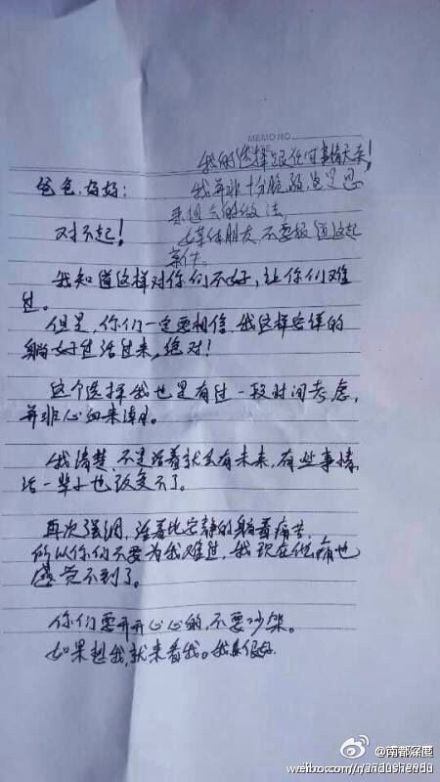 MEMO NO.
我的“选择”跟任何事情无关！
爸爸，妈妈：
我并非十分脆弱，
的做法，
对不起！
媒体朋友，不要报道这起
案件。
我知道这样对你们不好，让你们难
过。
但是，你们一定要相信，我这样安详的
躺好过活过来，绝对！
这个选择我也是有过一段时间考虑，
并非心血来潮。
我清楚，不是活着就会有未来，有些事情，
活一辈子也改变不了。
再次强调，活着比安静的躺着痛苦
所以你们不要为我难过，我现在伤痛也
感觉不到了。
你们要开开心心的，不要吵架。
如果想我，就来看我。我真很好.
@南都深圈
weibo.com/nandushendu